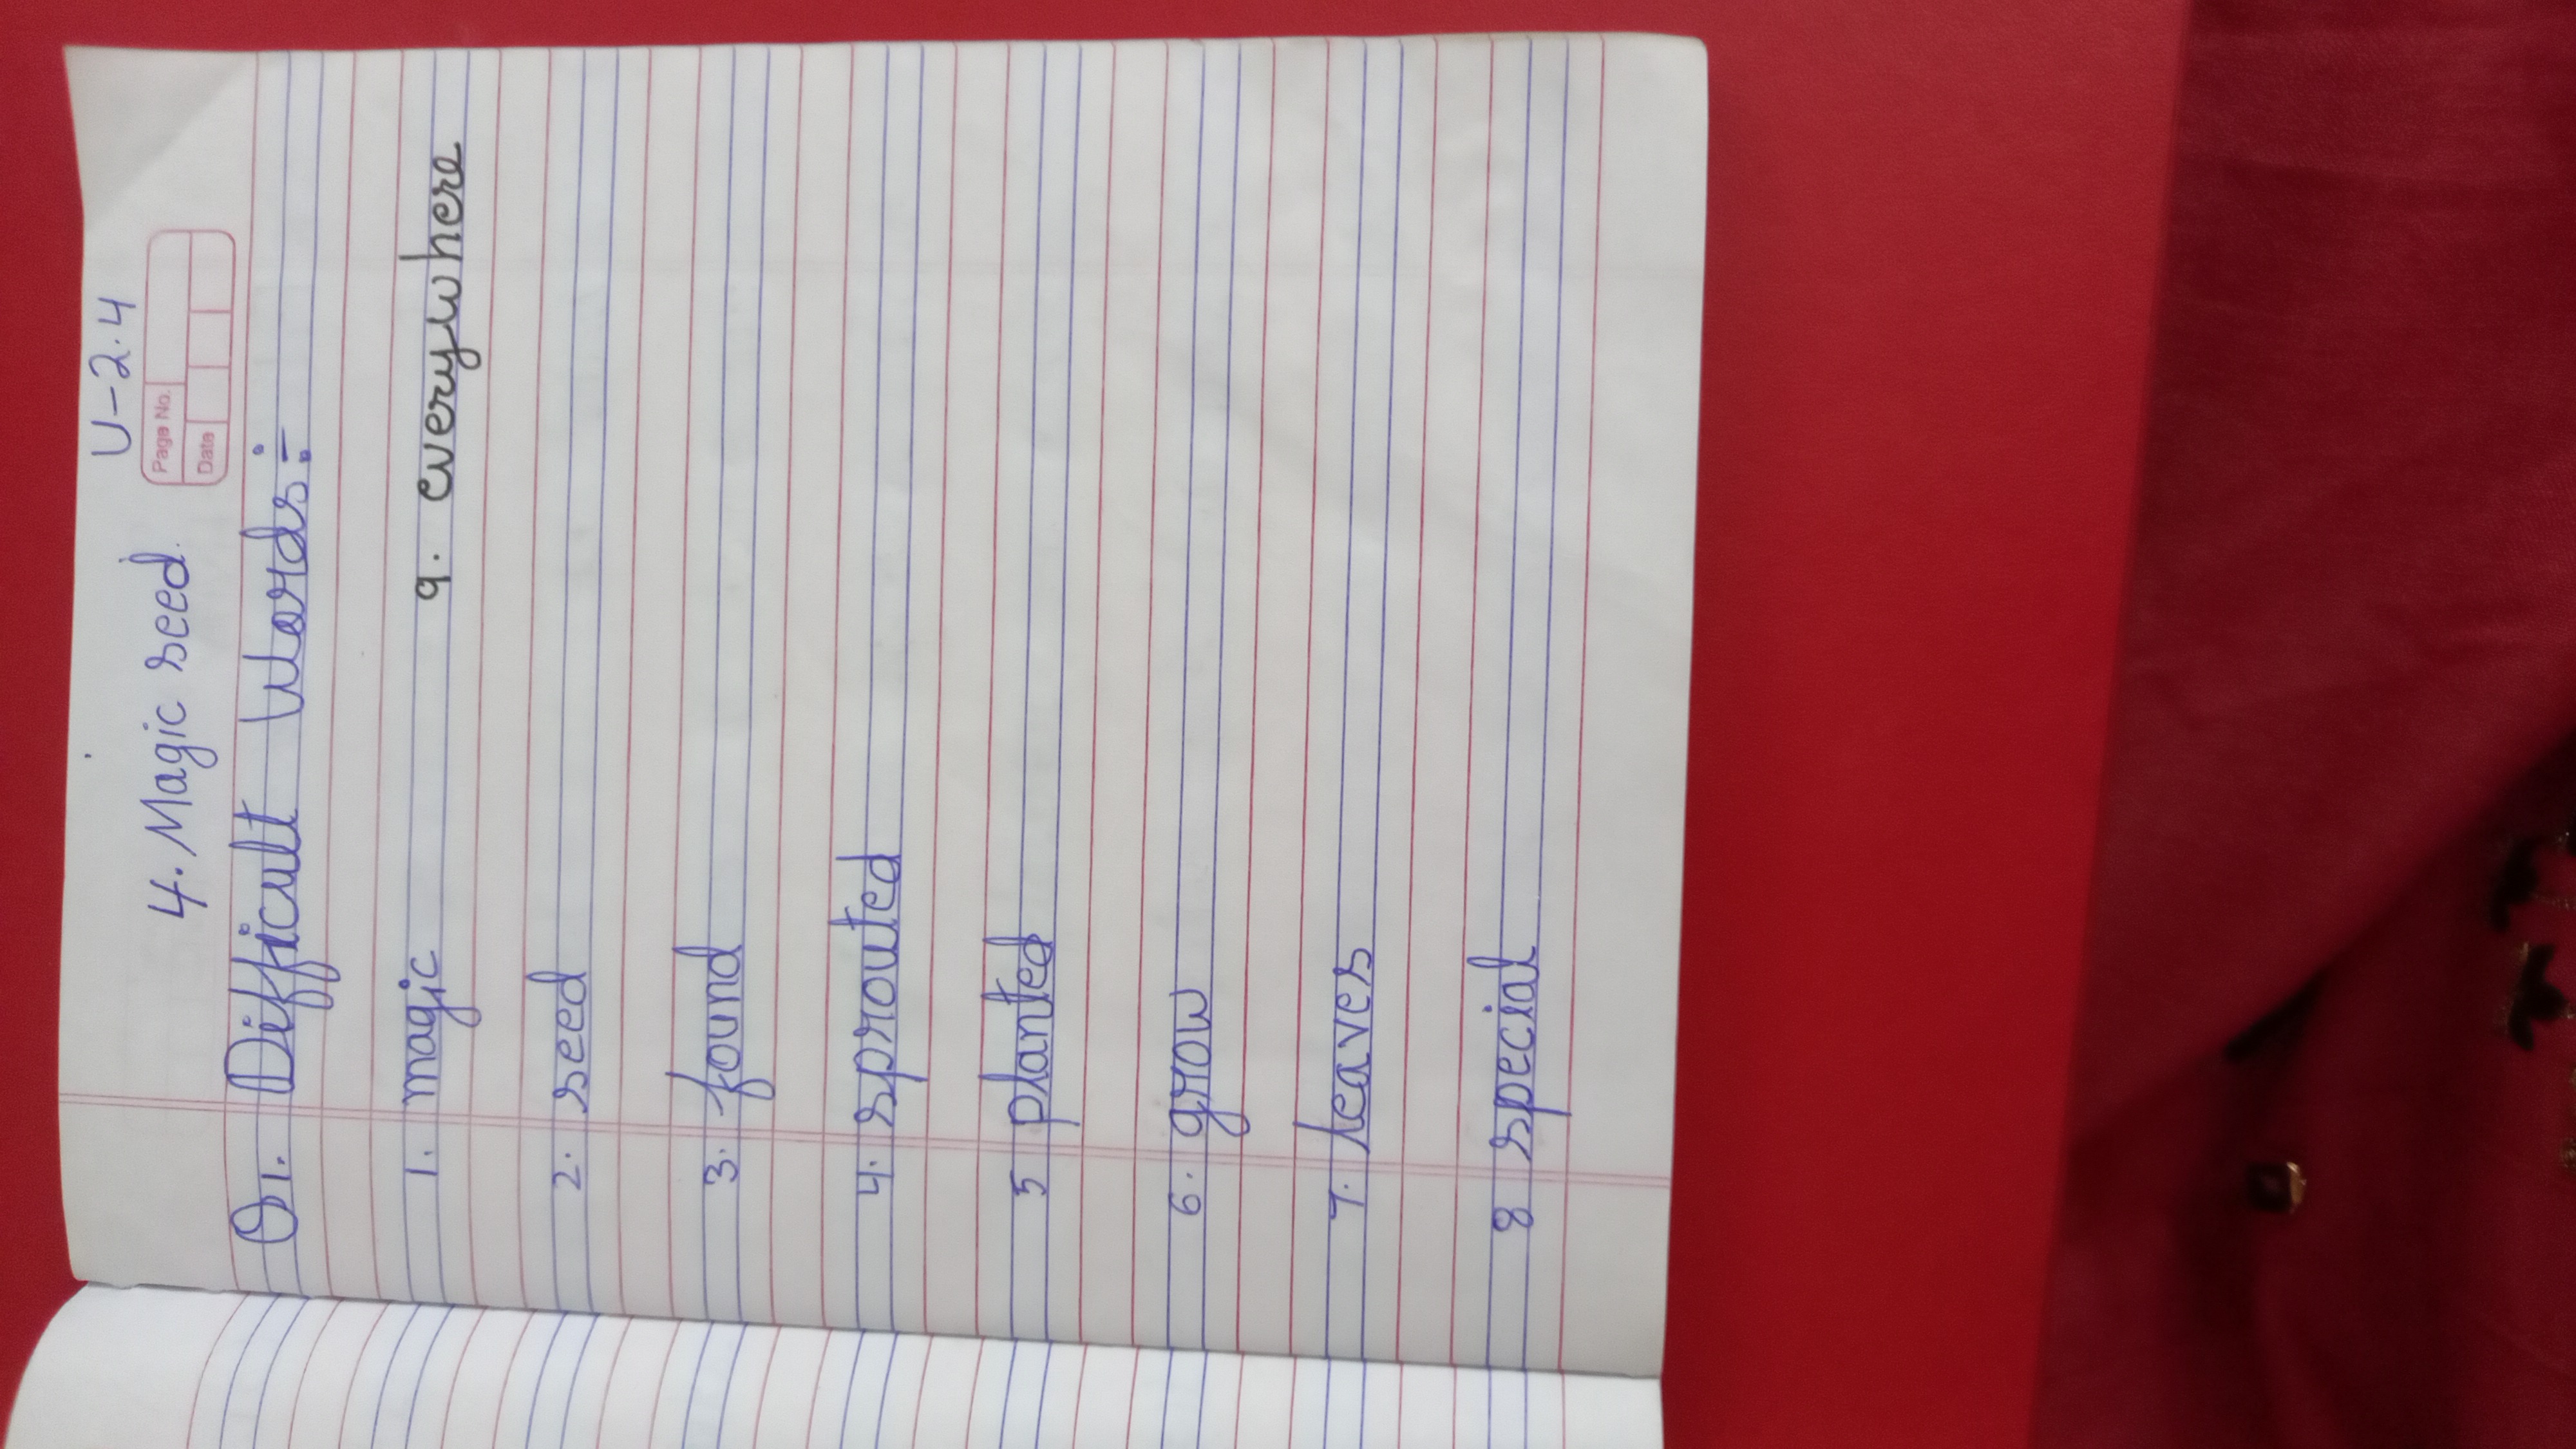 U-2.4
4. Magic seed.
Page No.
Date
Q1. Difficult Words:-
1. magic 9. everywhere
2. seed
3. found
4. sprouted
5 planted
6. grow
7. leaves
8 special